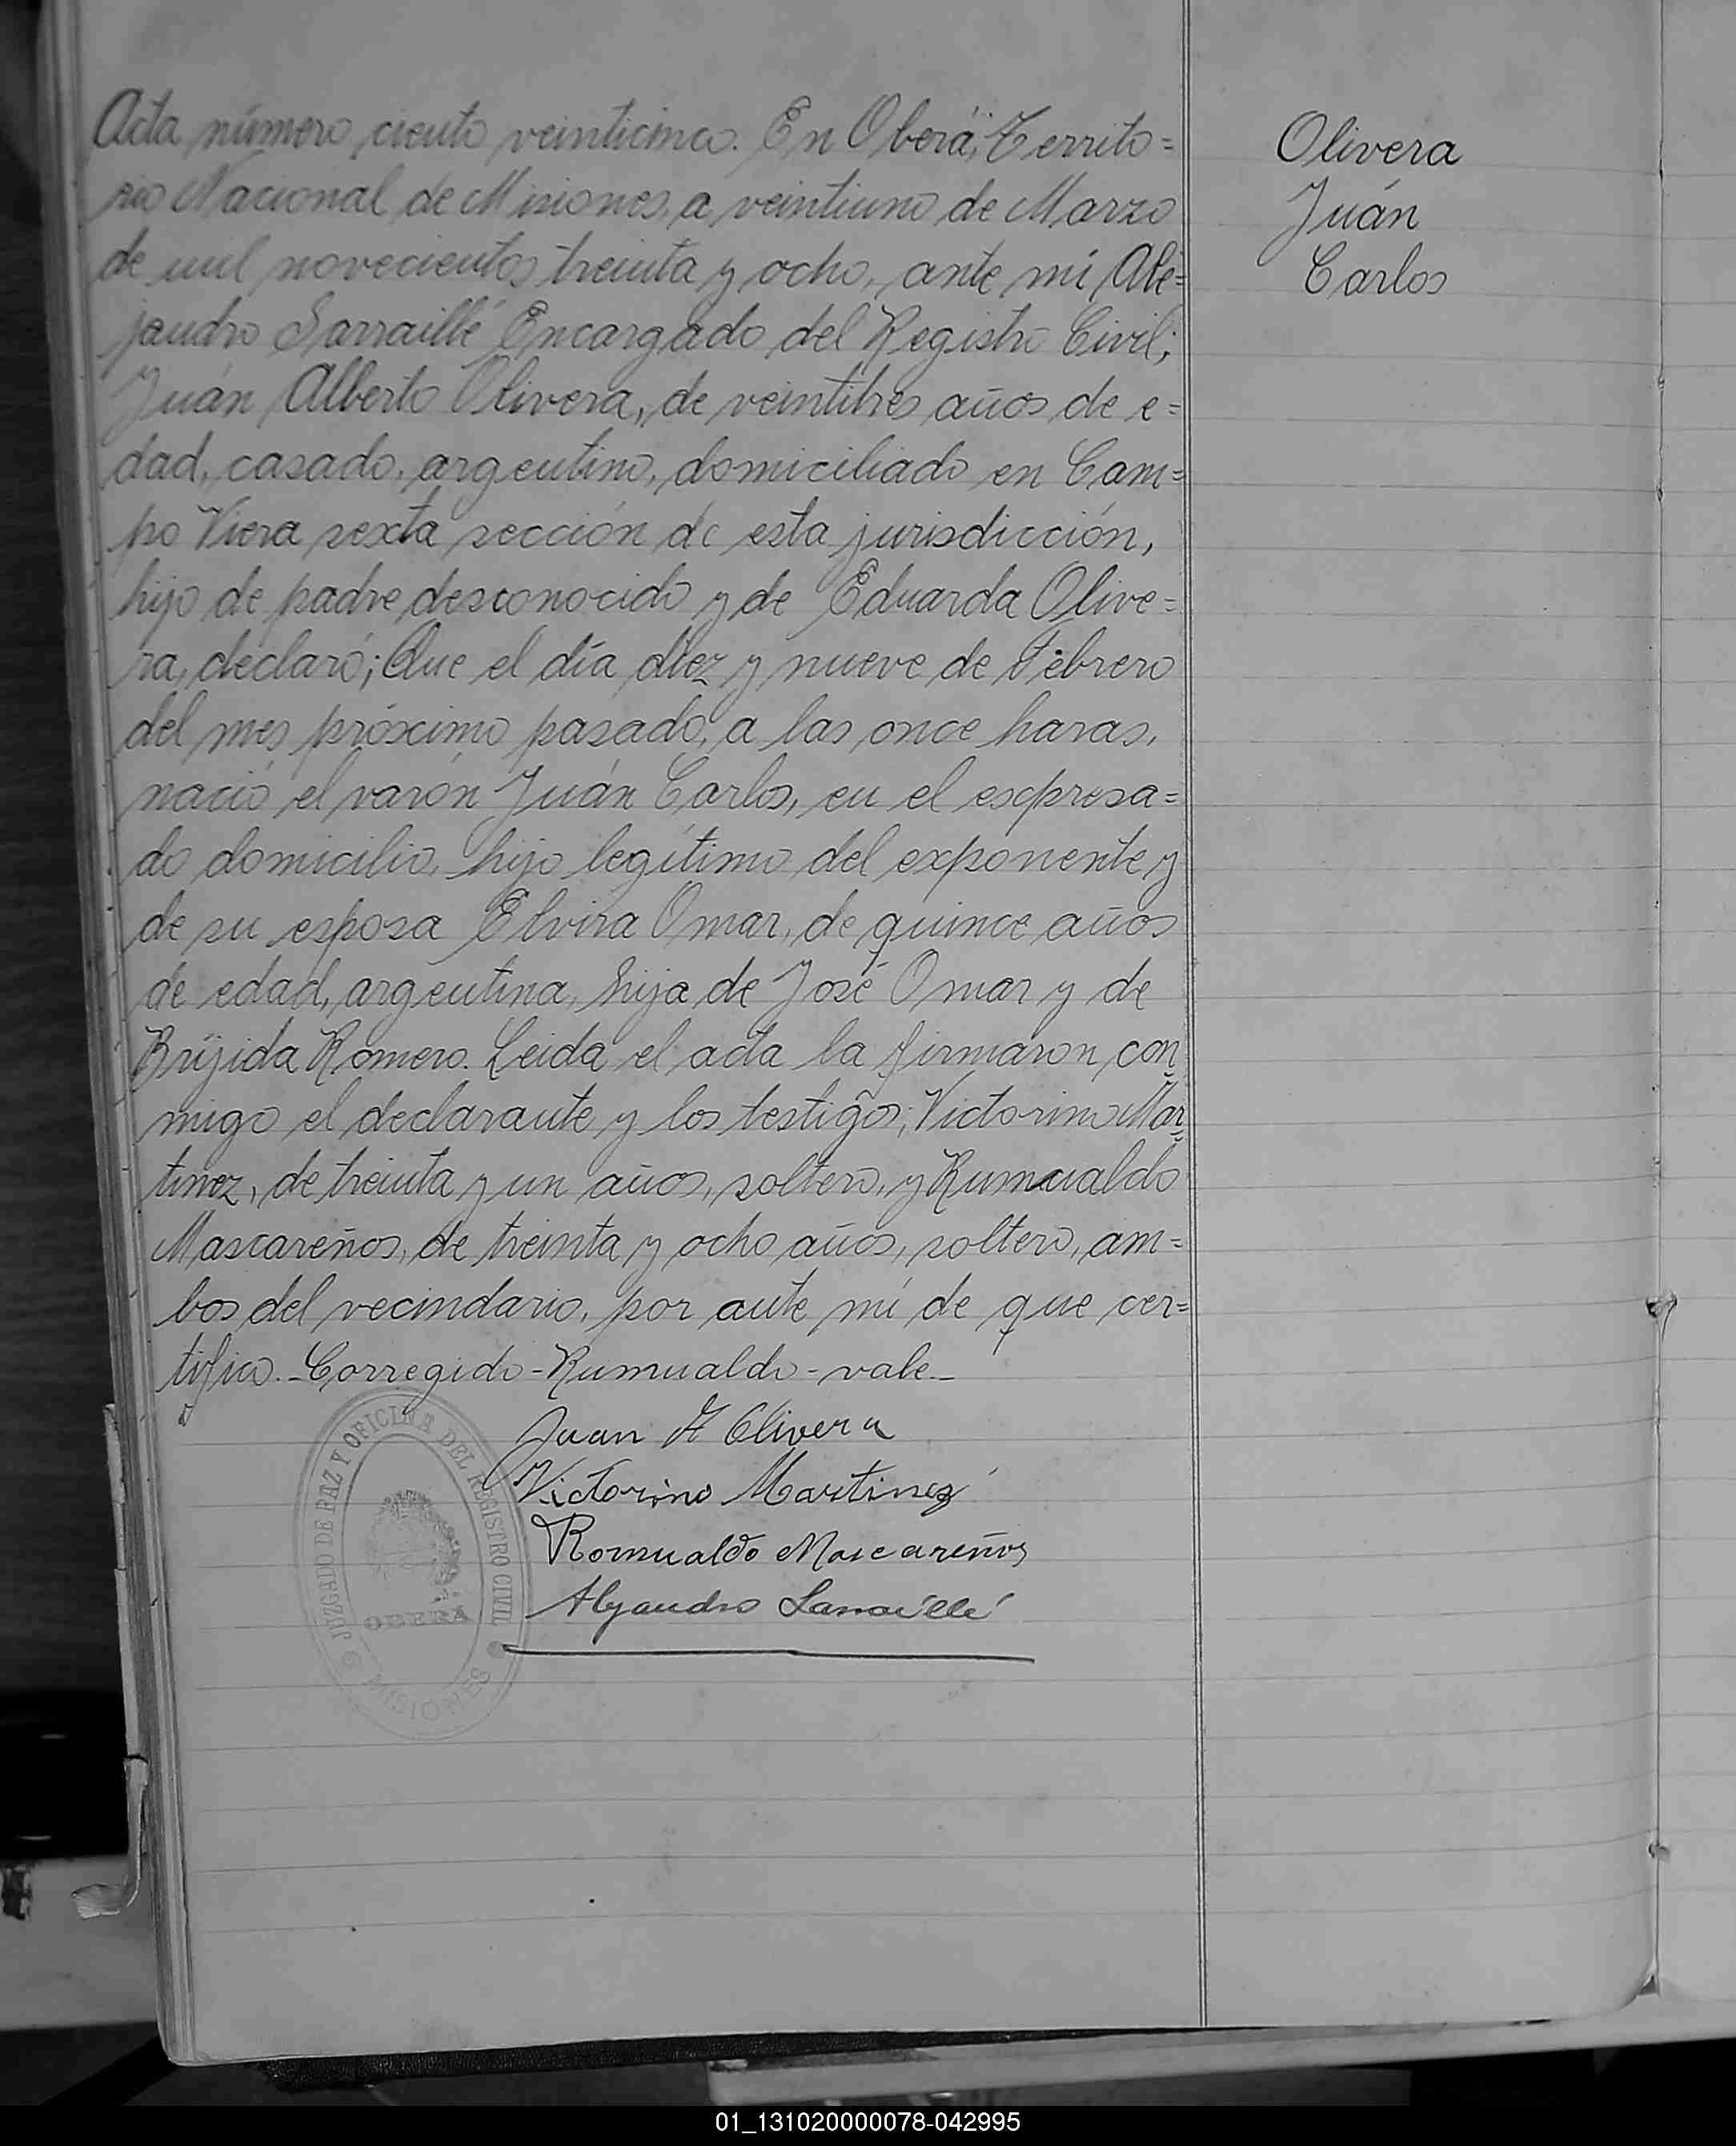 Acta número ciento veinticinco. En Oberá, Territo=
rio Nacional de Misiones, a veintiuno de Marzo
de mil novecientos treinta y ocho, ante mí Ale=
jandro Sarraillé Encargado del Registro Civil;
Juán Alberto Olivera, de veintitres años de e=
dad, casado, argentino, domiciliado en Cam=
po Viera sexta sección de esta jurisdicción,
hijo de padre desconocido y de Eduarda Olive=
ra, declaró; Que el día diez y nueve de Febrero
del mes próximo pasado, a las once haras,
nació el varón Juán Carlos, en el expresa=
do domicilio, hijo legítimo del exponente y
de su esposa Elvira Omar, de quince años
de edad, argentina, hija de José Omar y de
Bríjida Romero. Leida el acta la firmaron con
migo el declarante y los testigos; Victorino Mar
tinez, de treinta y un años, soltero, y Rumualdo
Mascareños, de treinta y ocho años, soltero, am=
bos del vecindario, por ante mí de que cer=
tifico. - Corregido - Rumualdo - vale -
Juan A Olivera
Victorino Martinez
Romualdo Mascareños
Alejandro Sarraillé
JUZGADO DE PAZ Y OFICINA DEL REGISTRO CIVIL
OBERÁ
MISIONES
Olivera
Juán
Carlos
01_131020000078-042995